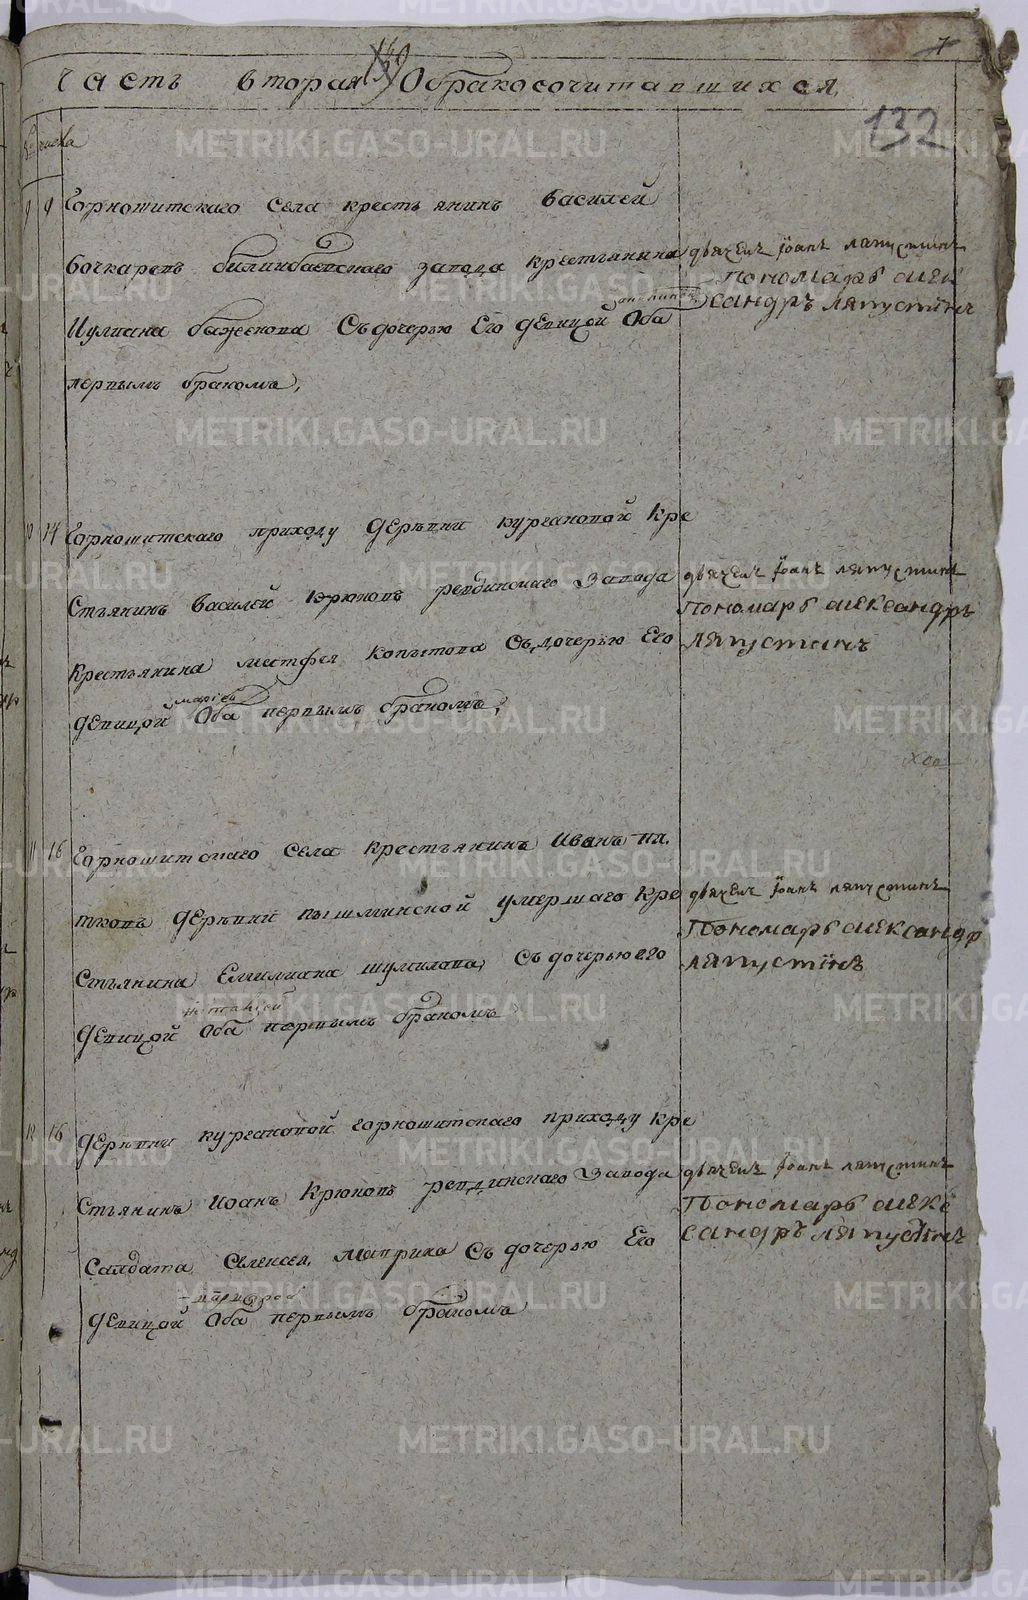 7
Часть вторая обракосочитавшихся
132
числа
9 Горношитскаго села крестьянинъ василей
бочкаревъ билимбаевскаго завода крестьянина
Иулиана баженова съ дочерью Его девицой Оба
первымъ бракомъ,
дьячекъ Iоанъ ляпустинъ
Пономарь алек
сандръ ляпустинъ
10 14 Горношитскаго приходу деревни кургановой кре
стьянинъ василей крюковъ ревдинскаго завода
крестьянина матфея копытова съ дочерью Его
марiей
девицой Оба первымъ бракомъ,
дьячекъ Iоанъ ляпустинъ
Пономарь александръ
ляпустинъ
11 16 Горношитскаго села крестьянинъ Иванъ
деревни пышминской умершаго кре
стьянина Емилиана шумилова, съ дочерью его
девицой Оба первымъ бракомъ
дьячекъ Iоанъ ляпустинъ
Пономарь александр
ляпустiнъ
12 16 деревни кургановой горношитскаго приходу кре
стьянинъ Иоанъ Крюковъ ревдинскаго завода
Салдата Алексея, маврина съ дочерью Его
девицой Оба первымъ бракомъ
дьячекъ Iоанъ ляпустинъ
Пономарь алекъ
сандръ ляпустiнъ
METRIKI.GASO-URAL.RU